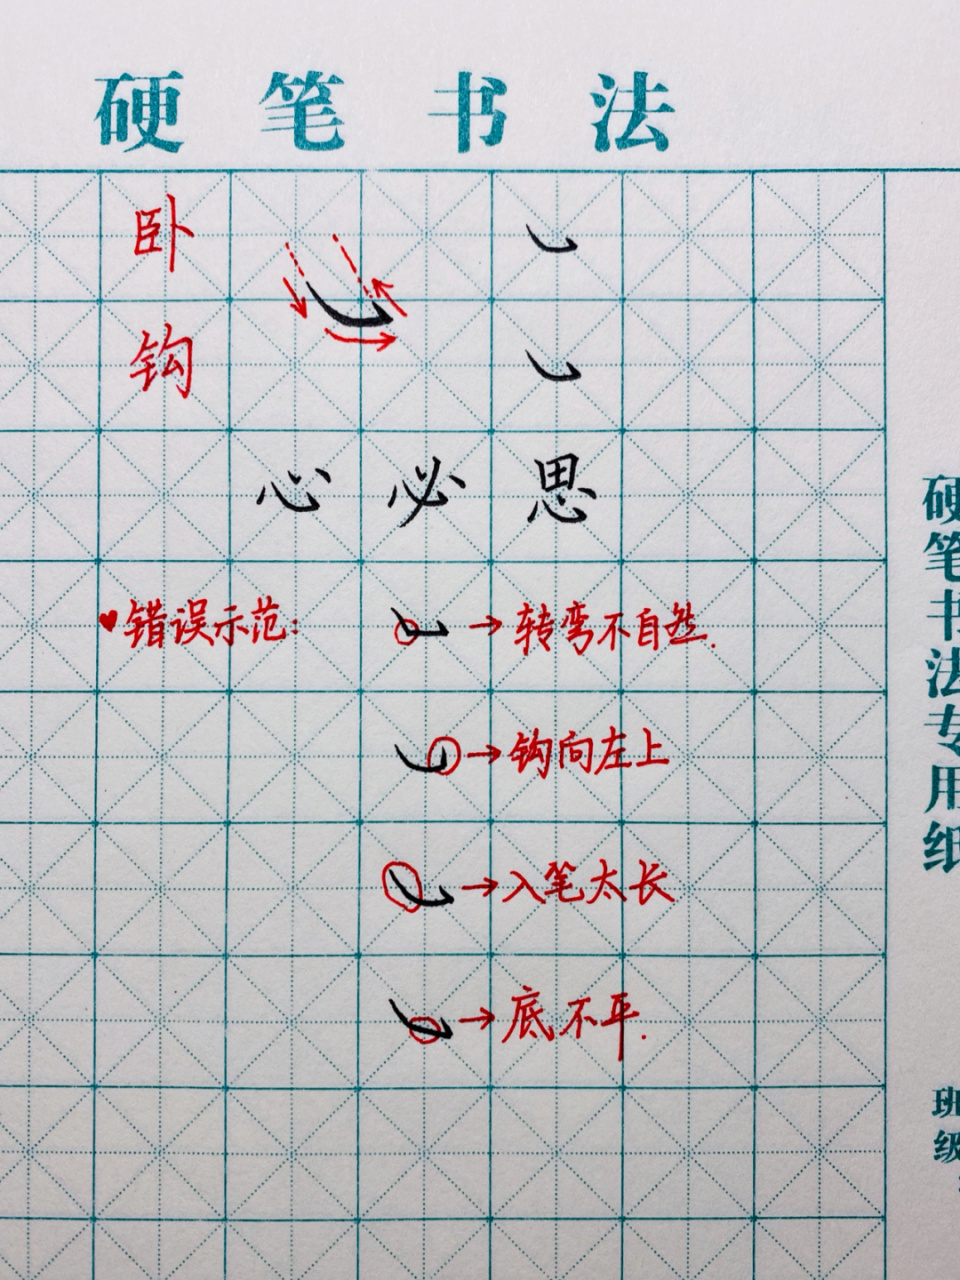 硬笔书法
卧钩
心必思
♥错误示范:
→转弯不自然.
→钩向左上
→入笔太长
→底不平.
硬笔书法专用纸
班级